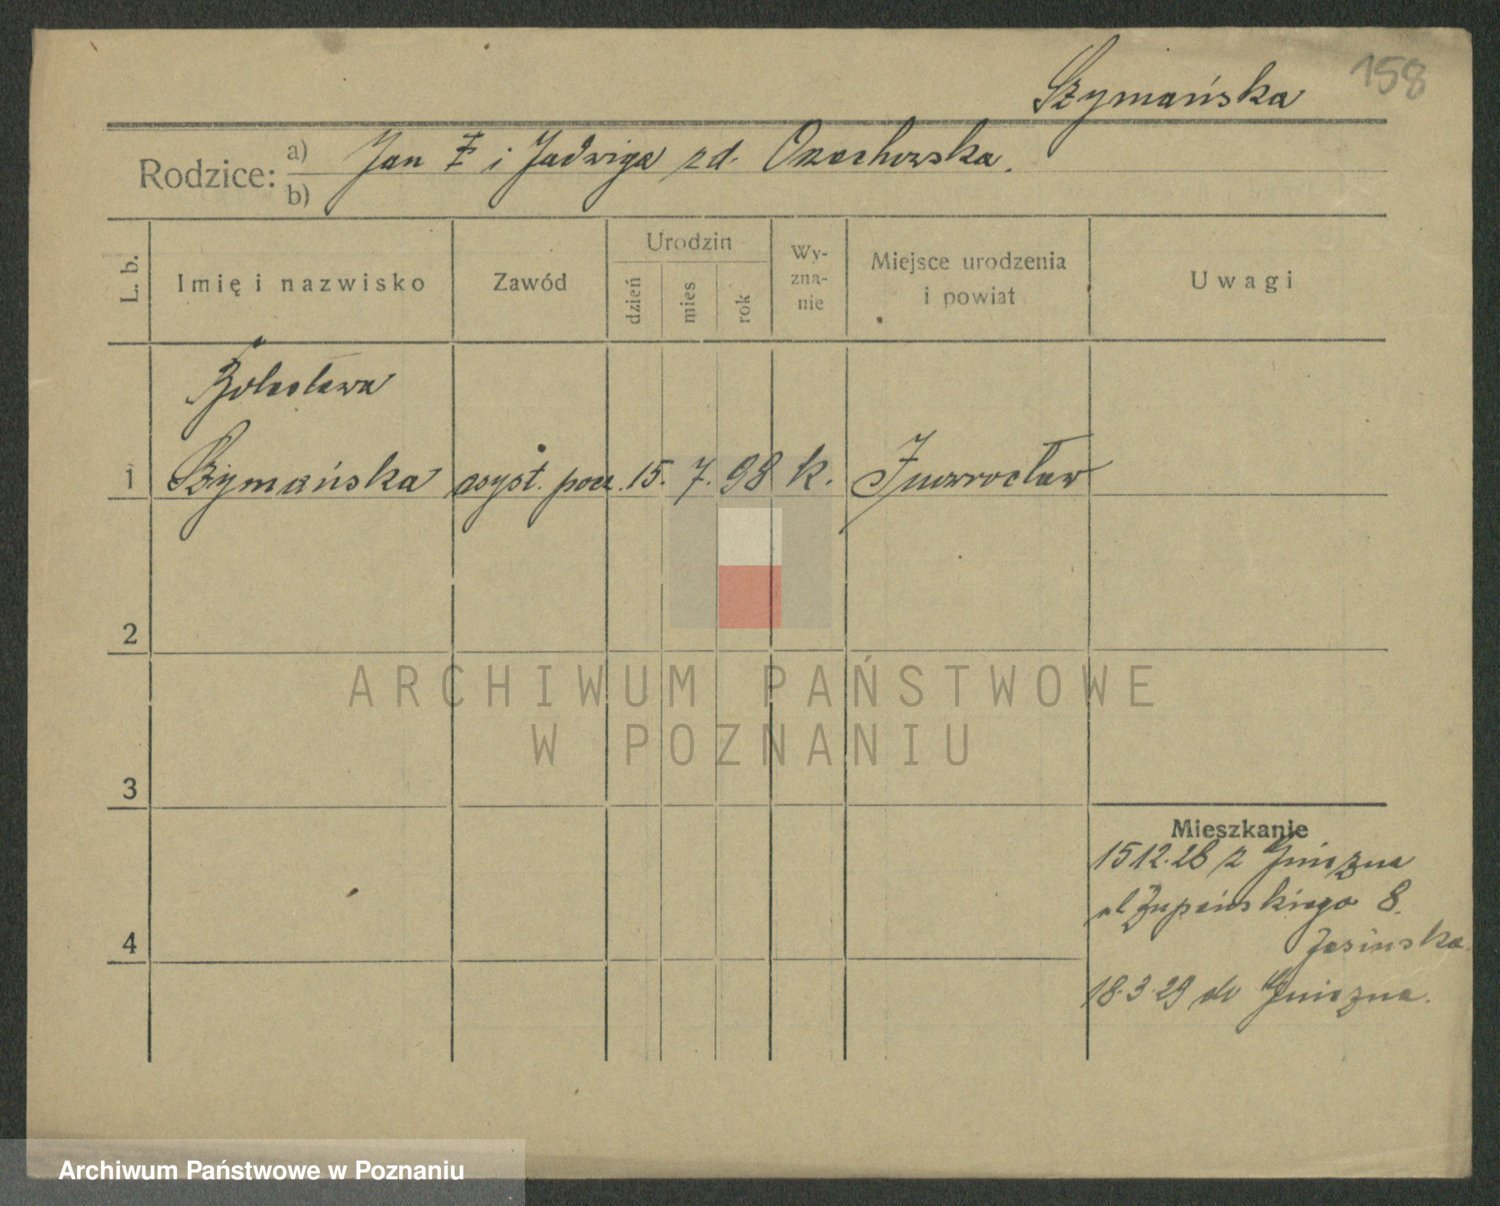 Szymańska 158
Rodzice: a) Jan i Jadwiga zd. Orzechowska.
b)
L. b. Imię i nazwisko Zawód Urodzin dzień mies rok Wy-zna-nie Miejsce urodzenia i powiat Uwagi
Bolesława
1 Szymańska asyst. pocz. 15. 7. 98 k. Inowrocław
2
ARCHIWUM PAŃSTWOWE
W POZNANIU
3
Mieszkanie
15 12. 28 z Gniezna
ul Żupańskiego 8.
Jasinska
4
18. 3. 29 do Gniezna.
Archiwum Państwowe w Poznaniu